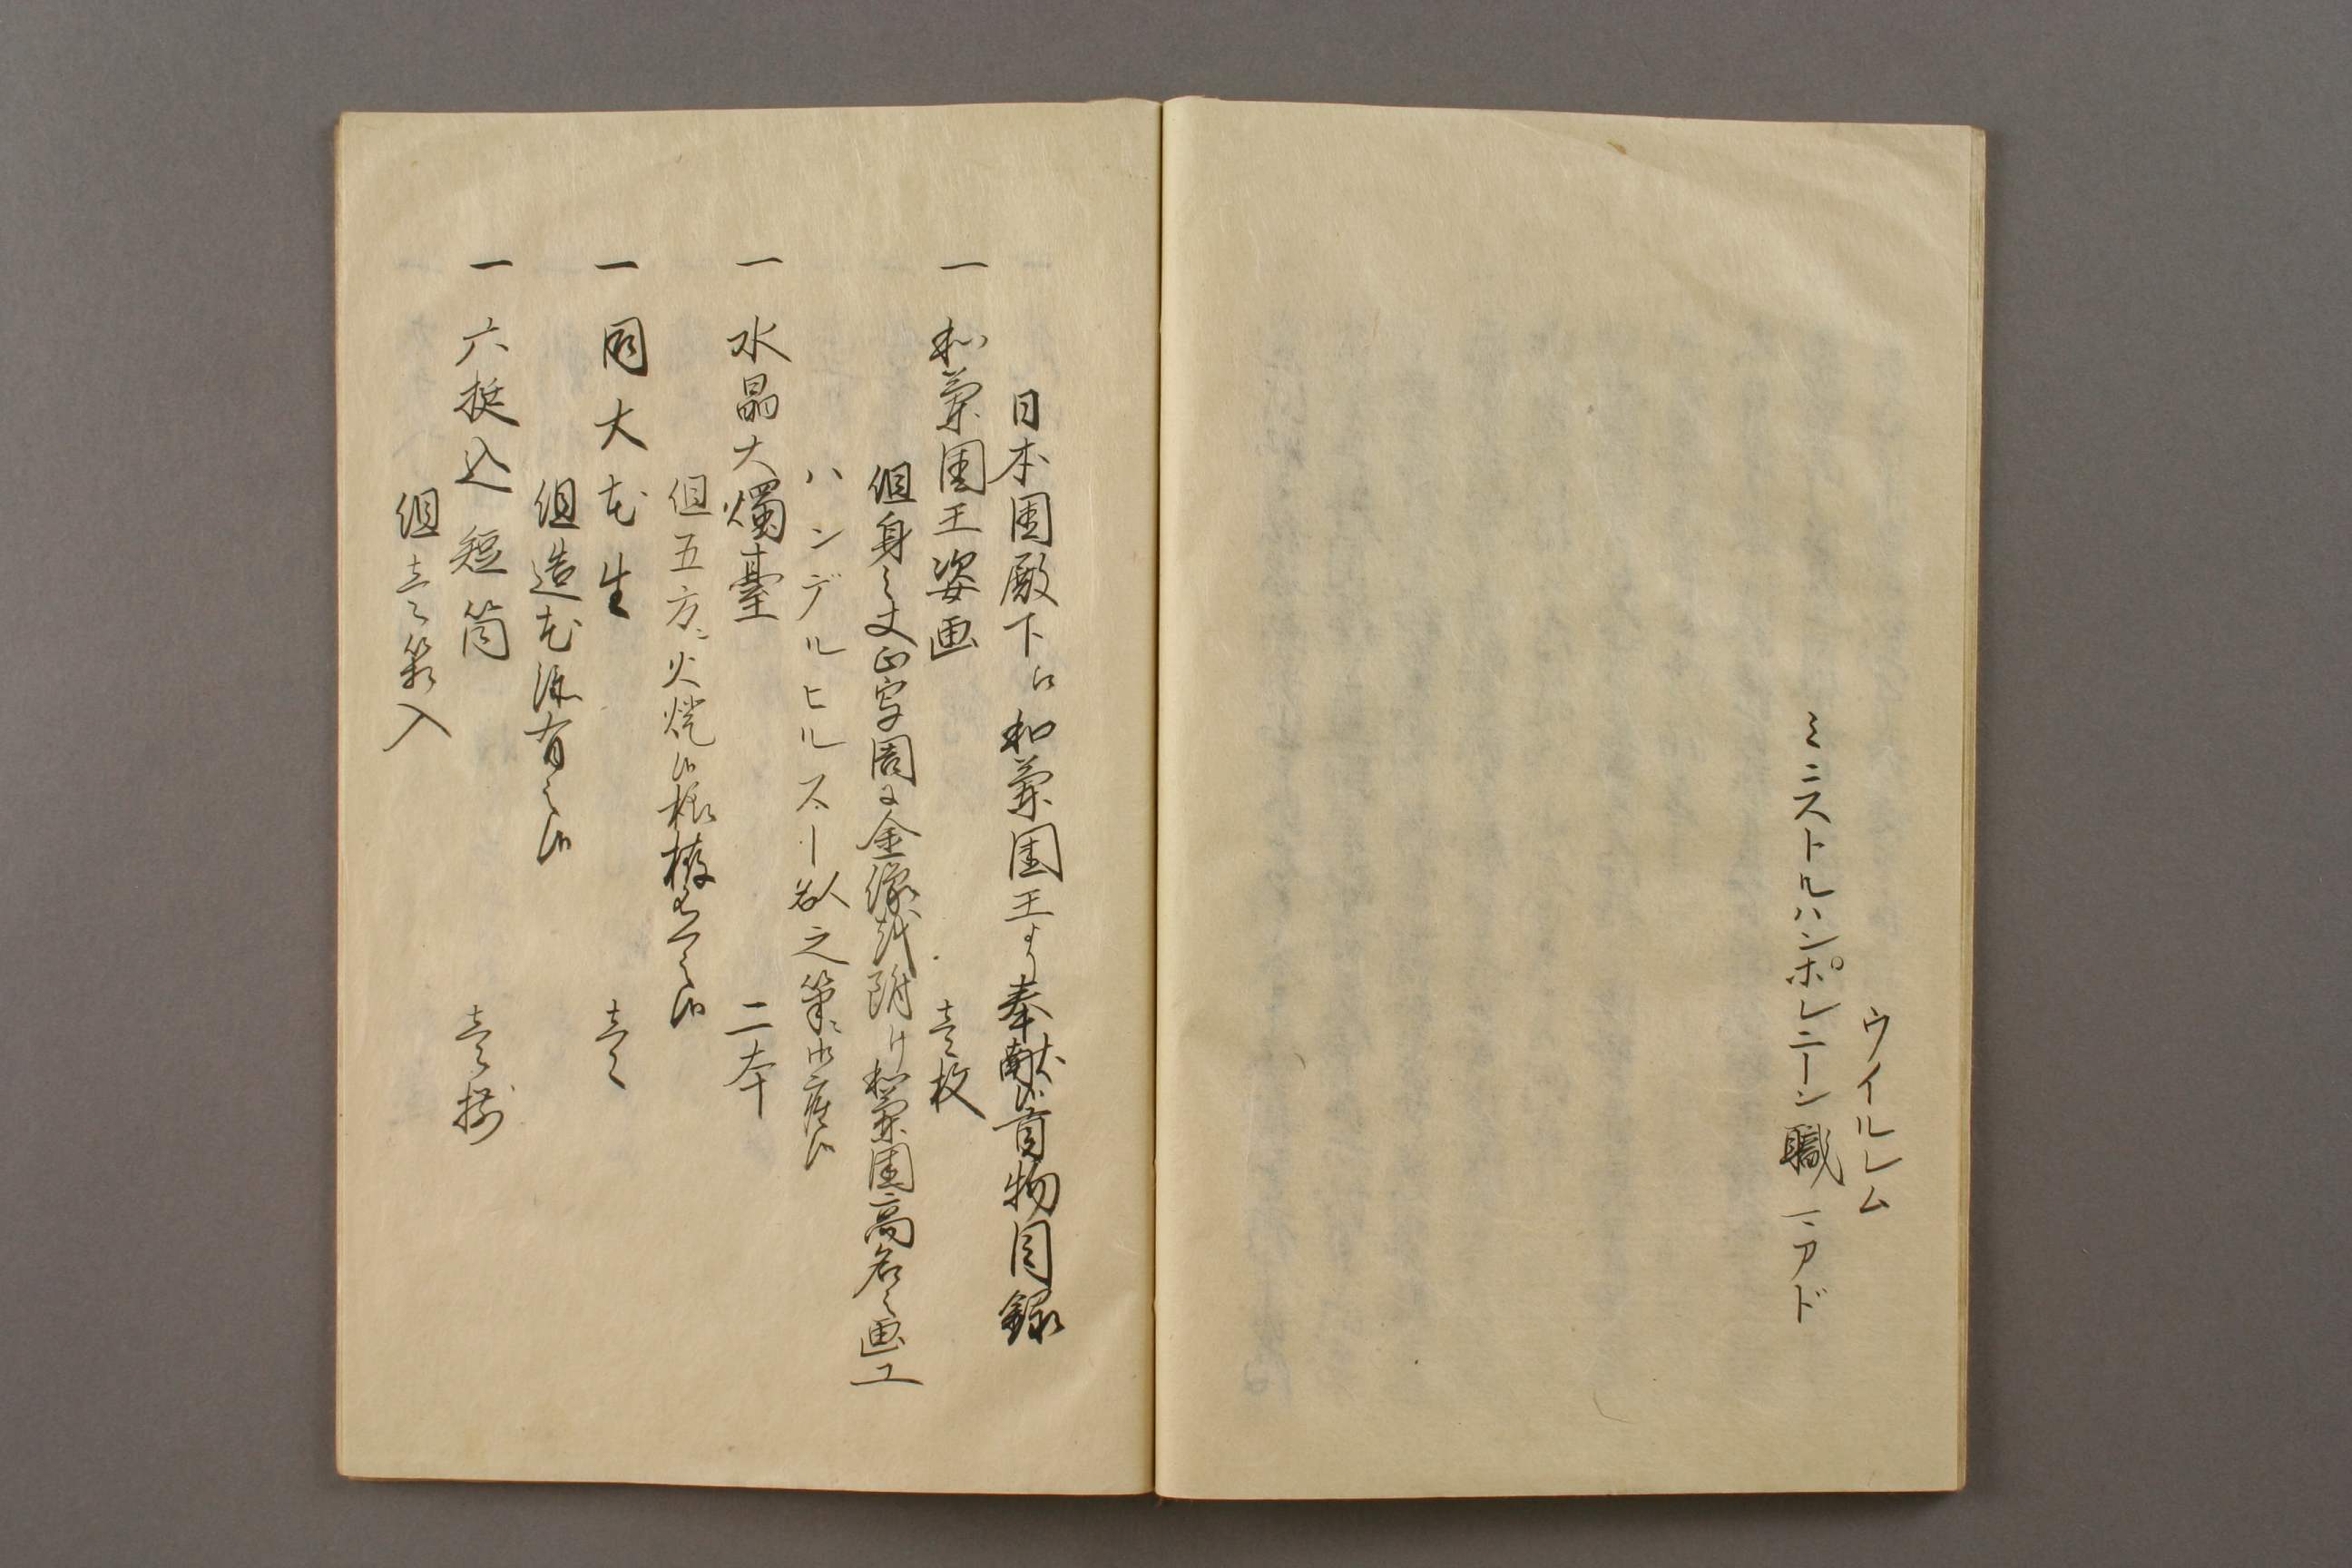 ウイルレム
ミニストルハンポレニーン職 一ニアド
日本国殿下江和蘭国王より奉献候貢物目録
一 和蘭国王姿画 壱枚
但身之丈正写周に金縁を附け和蘭国高名之画工
ハンデルヒルスト之筆ニ御座候
一 水晶大燭臺 二本
但五方ニ火燈候様
一 同大花生 壱
但造花添有之候
一 六挺込短筒 壱揃
但壱箱入